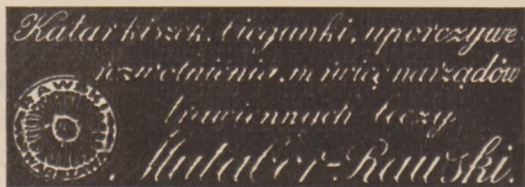 Katar kiszek, biegunki, uporczywe
rozwolnienia, m iwię narządów
trawiennych leczy
Mutabor-Rawski.
RAWSKI
WARSZAWA